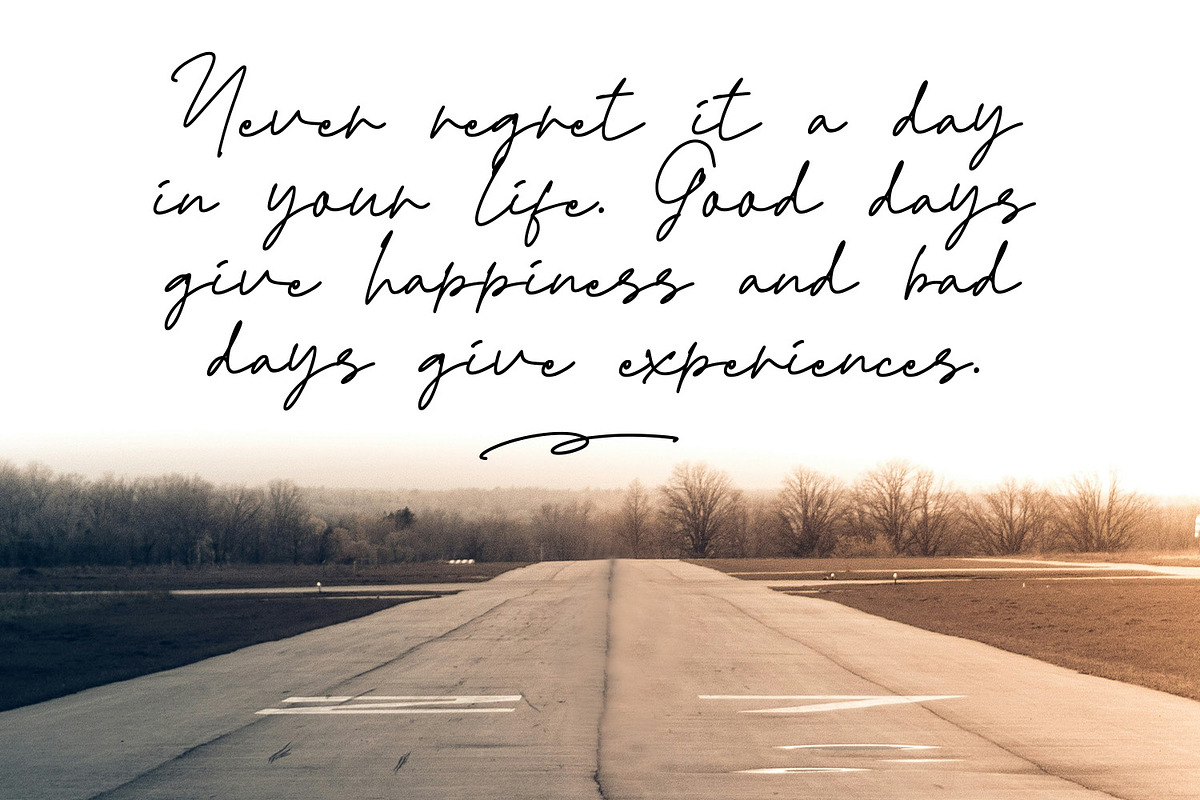 Never regret it a day
in your life. Good days
give happiness and bad
days give experiences.